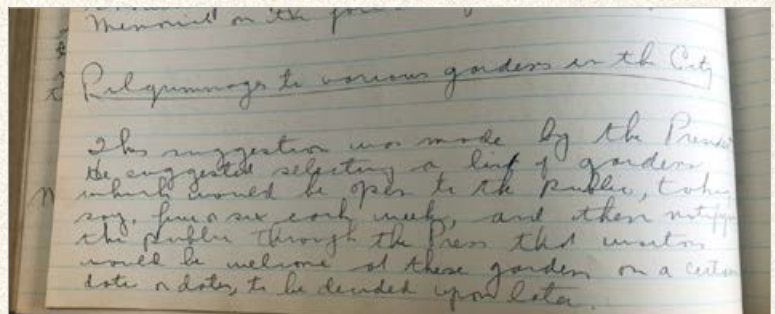 Memorial on the
Pilgrimmages to various gardens in the City
This suggestion was made by the
He suggested selecting a list of gardens
which would be open to the public, taking
say, five or six each week, and then
the public through the Press that visitors
would be welcome at these gardens on a certain
date or dates, to be decided upon later.